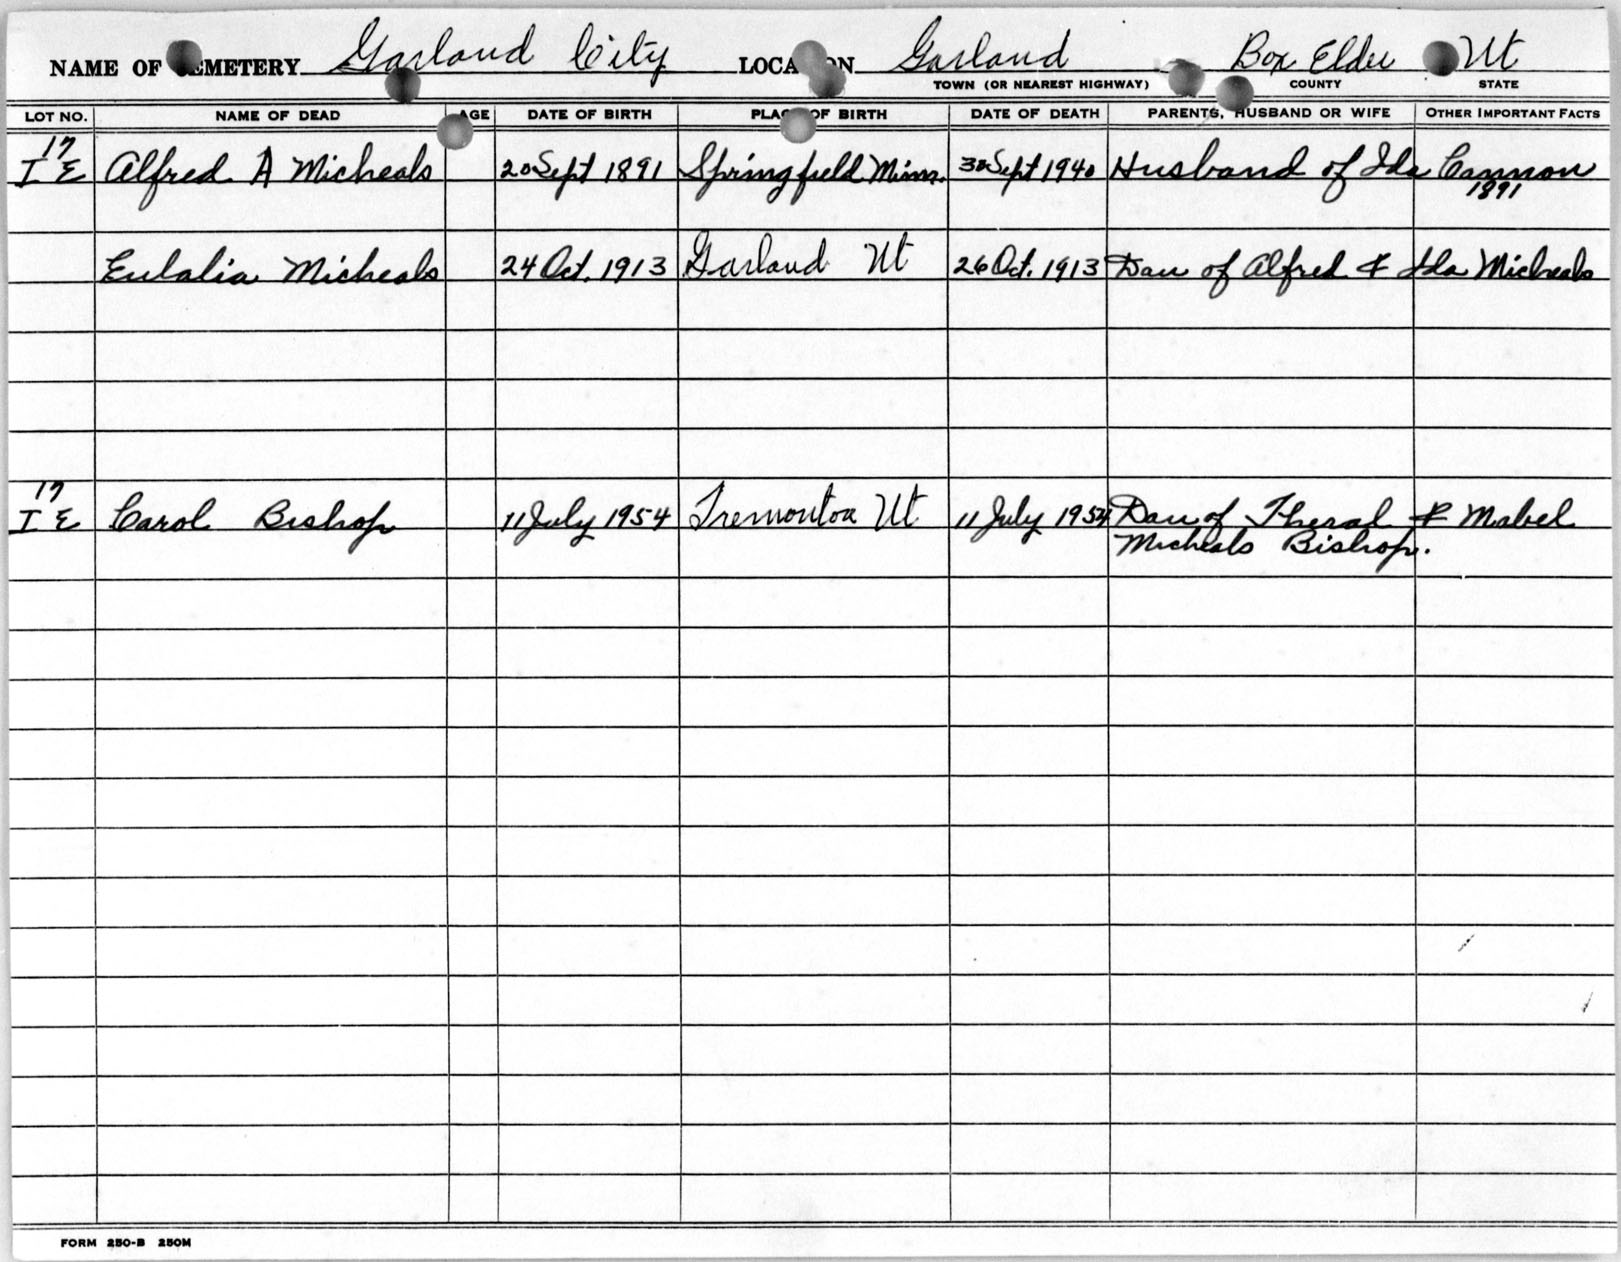 NAME OF CEMETERY Garland City LOCATION Garland Box Elder Ut
TOWN (OR NEAREST HIGHWAY) COUNTY STATE
LOT NO. NAME OF DEAD AGE DATE OF BIRTH PLACE OF BIRTH DATE OF DEATH PARENTS, HUSBAND OR WIFE OTHER IMPORTANT FACTS
17
I E Alfred A Micheals 20 Sept 1891 Springfield Minn. 30 Sept 1940 Husband of Ida Cannon
1891
Eulalia Micheals 24 Oct. 1913 Garland Ut 26 Oct. 1913 Dau of Alfred & Ida Micheals
17
I E Carol Bishop 11 July 1954 Tremonton Ut 11 July 1954 Dau of Theral & Mabel
Micheals Bishop.
FORM 250-B 250M